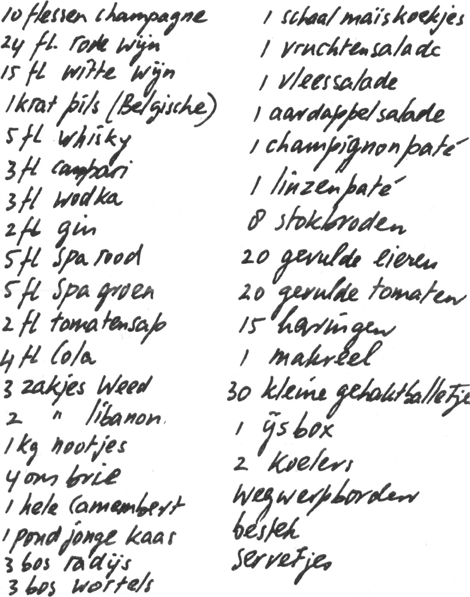 10 flessen champagne
24 fl. rode wijn
15 fl witte wijn
1 krat pils (Belgische)
5 fl whisky
3 fl campari
3 fl wodka
2 fl gin
5 fl Spa rood
5 fl Spa groen
2 fl tomatensap
4 fl Cola
3 zakjes weed
2 " libanon.
1 kg nootjes
4 ons brie
1 hele Camembert
1 pond jonge kaas
3 bos radijs
3 bos wortels
1 schaal maïskoekjes
1 vruchtensalade
1 vleessalade
1 aardappelsalade
1 champignonpaté
1 linzenpaté
8 stokbroden
20 gevulde eieren
20 gevulde tomaten
15 haringen
1 makreel
30 kleine gehaktballetje
1 ijsbox
2 koelers
wegwerpborden
bestek
servetjes